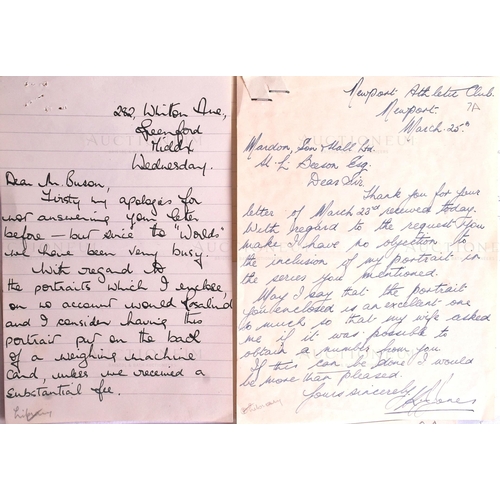 282, Whiton Ave,
Greenford
Middx
Wednesday.
Dear Mr. Buson,
Firstly my apologies for
not answering your letter
before – but since the "Worlds"
we have been very busy.
With regard to
the portraits which I enclose,
on no account would Rosalind
and I consider having this
portrait put on the back
of a weighing machine
card, unless we received a
substantial fee.
Newport Athletic Club.
Newport.
7A
March. 25th
Mardon, Son & Hall Ltd.
H. L. Beeson Esq.
Dear Sir.
Thank you for your
letter of March 23rd received today.
With regard to the request you
make I have no objection to
the inclusion of my portrait in
the series you mentioned.
May I say that the portrait
you enclosed is an excellent one
so much so that my wife asked
me if it was possible to
obtain a number from you
If this can be done I would
be more than pleased.
Yours sincerely
AUCTIONEUM
AUCTIONEUM